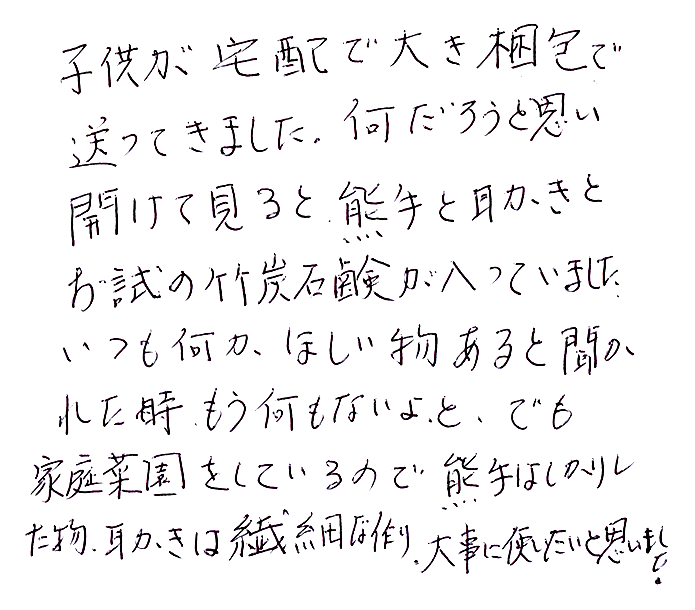 子供が宅配で大き梱包で
送ってきました。何だろうと思い
開けて見ると、熊手と耳かきと
お試の竹炭石鹸が入っていました
いつも何か、ほしい物あると聞か
れた時、もう何もないよ、と、でも
家庭菜園をしているので熊手はしっかりし
た物、耳かきは繊細な作り、大事に使いたいと思いました!